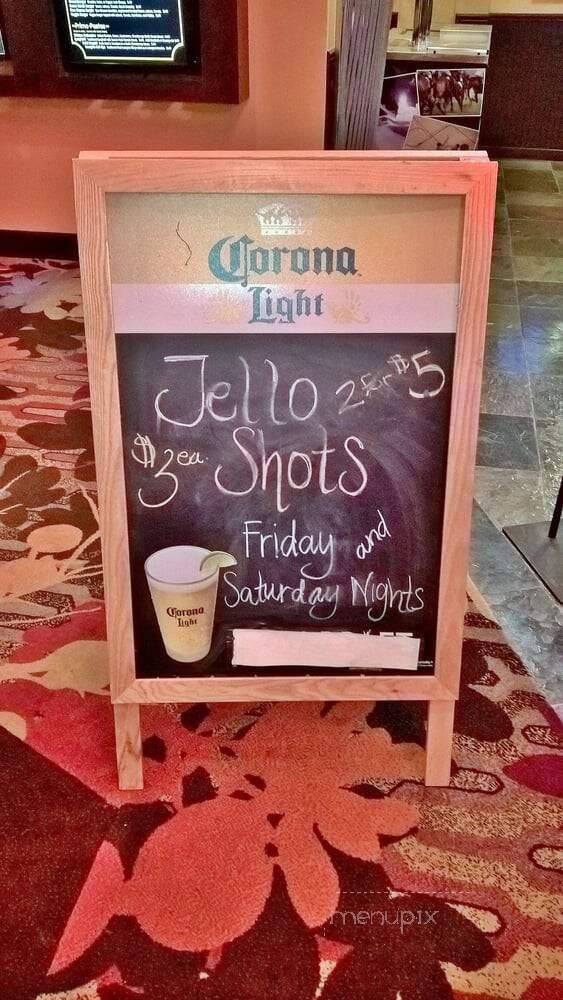 Corona
Light
Jello 2 for $5
$3 ea. Shots
Friday and
Saturday Nights
Corona
Light
menupix